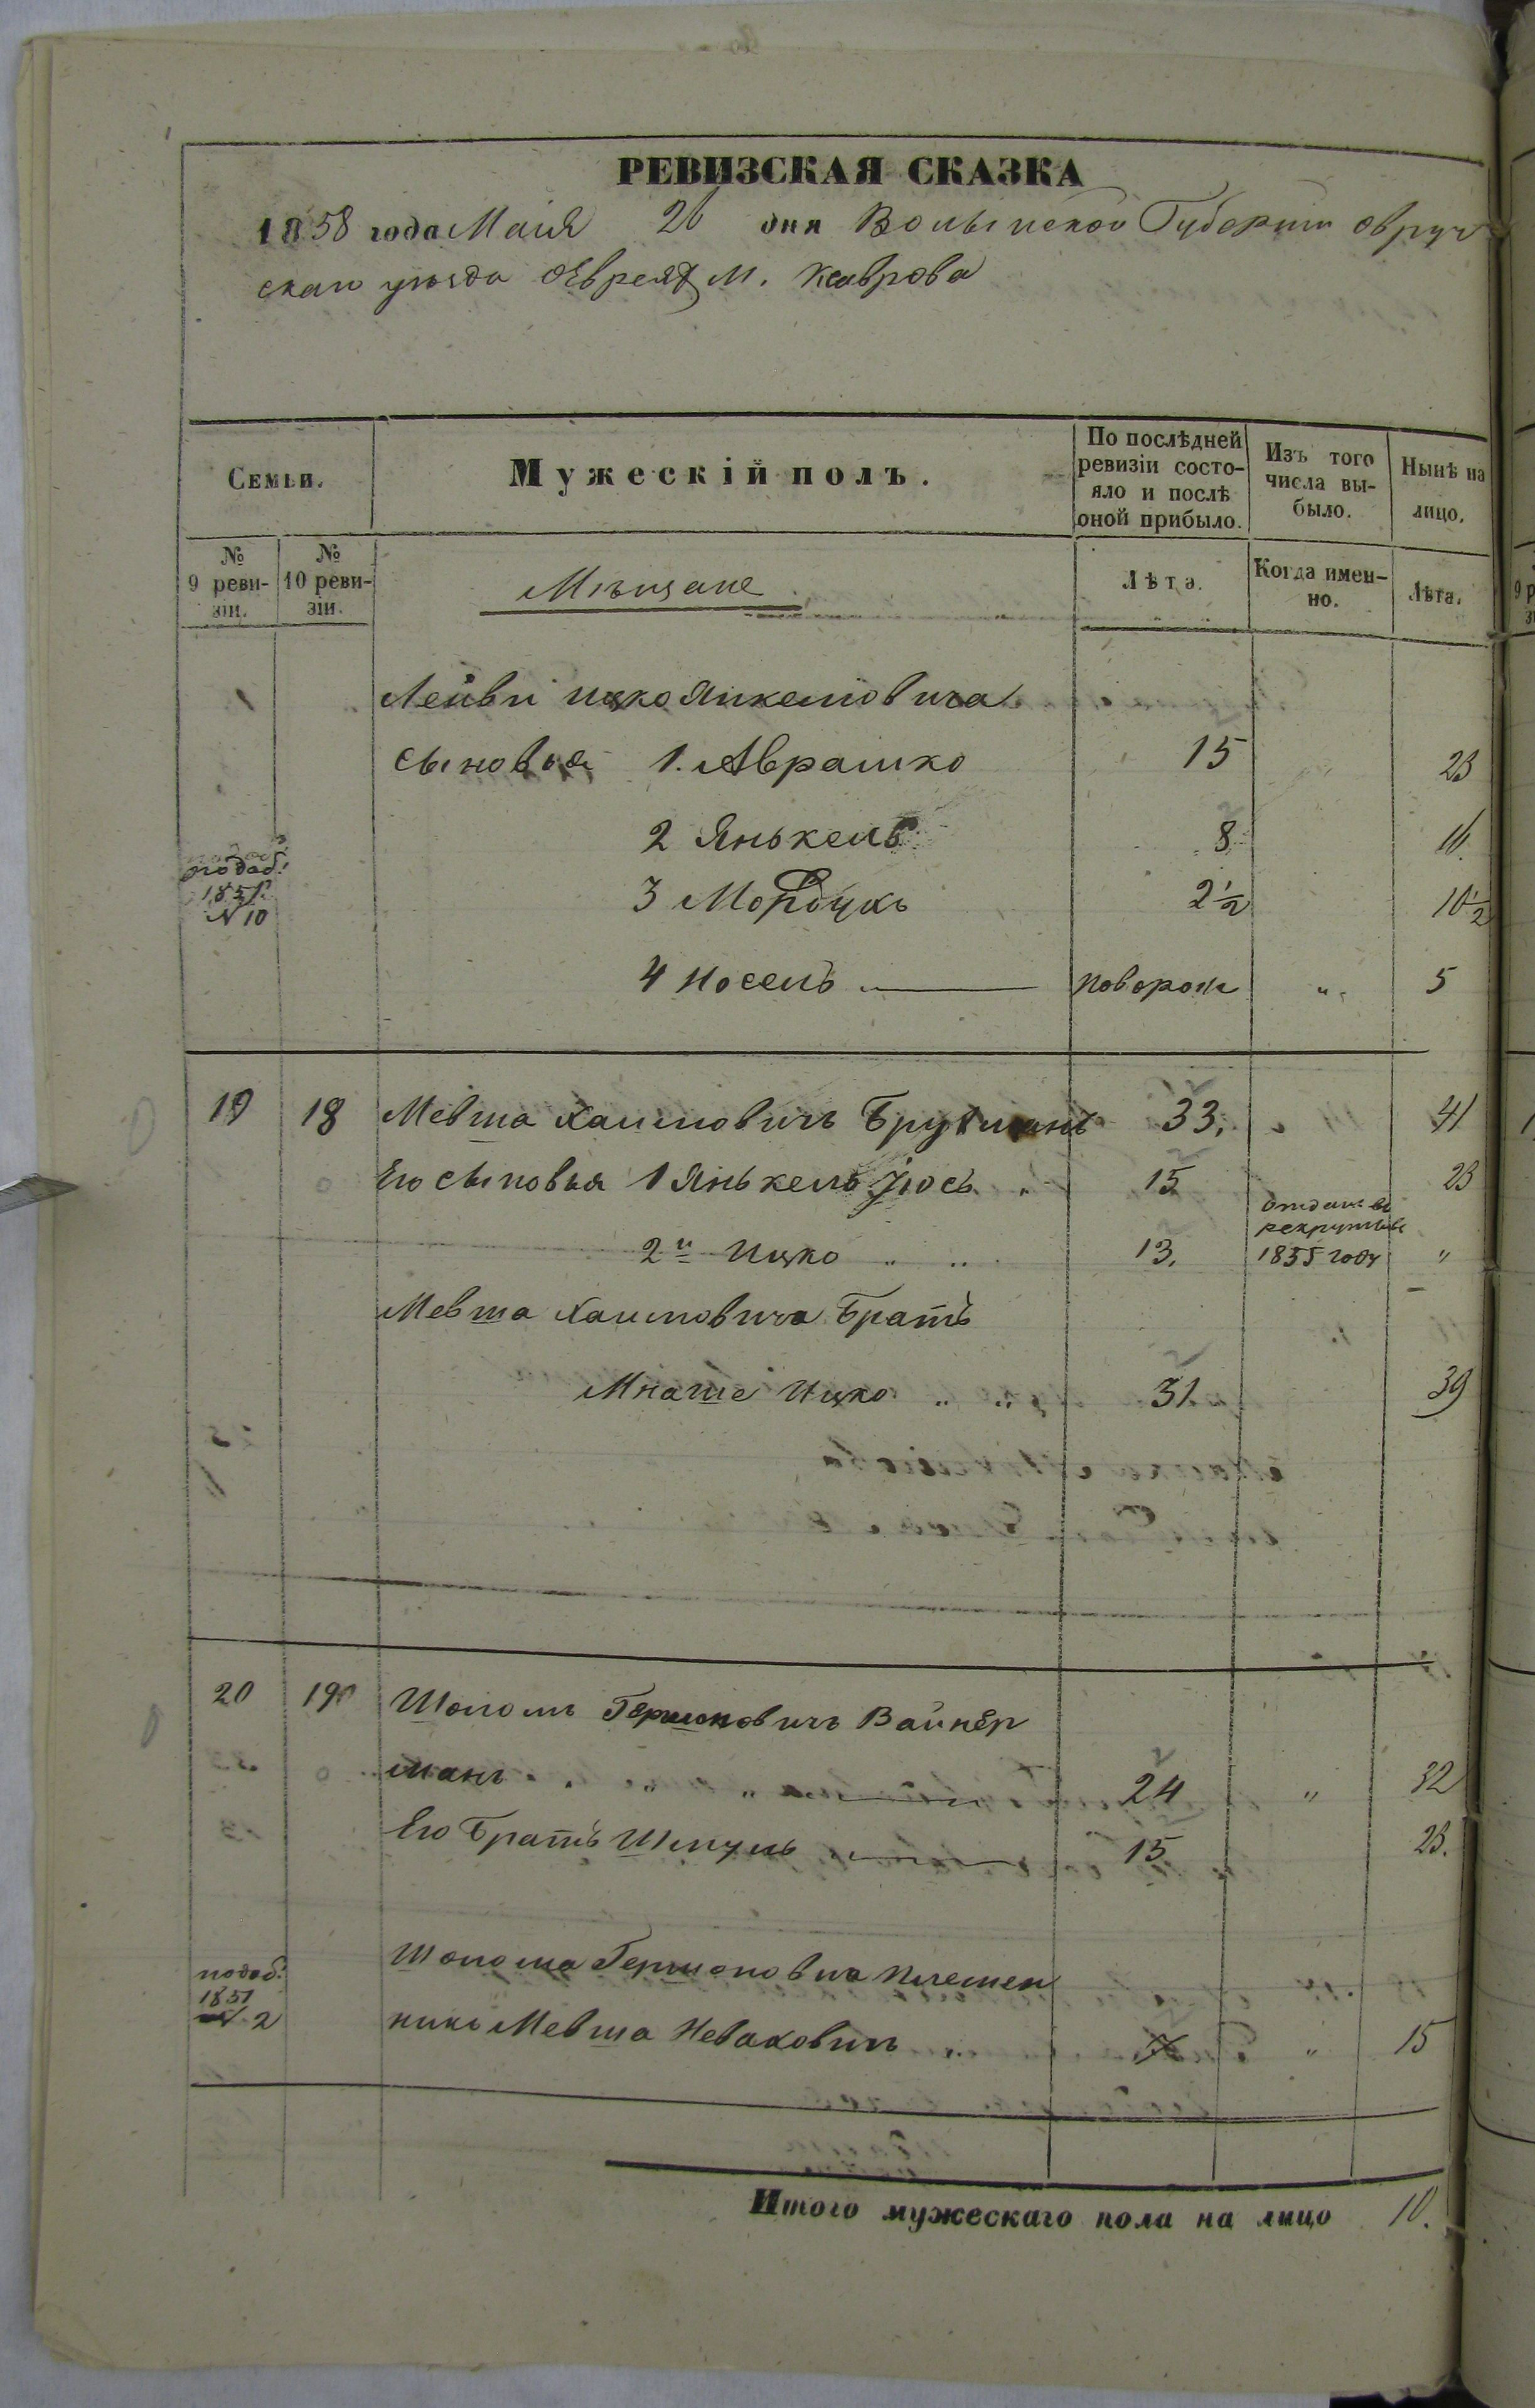 РЕВИЗСКАЯ СКАЗКА
1858 года Маія 26 дня Волынской Губерніи овруч
скаго уѣзда Евреят м. Ксаврова
Семьи.
Мужескій полъ.
По послѣдней ревизіи состо-
яло и послѣ
оной прибыло.
Изъ того
числа вы-
было.
Нынѣ на
лицо.
№
9 реви-
зіи.
№
10 реви-
зіи.
Мѣщане
Лѣта.
Когда имен-
но.
Лѣта.
Лейви ицко Янкеліовича
сыновья 1. Аврамко 15 23
2 Янькель 8 16
подоб.
1851
N 10
3 Мордуко 2½ 10½
4 Носель новорож „ 5
19 18 Мевша Хаимовичъ Брутманъ 33, 41
Его сыновья 1 Янькель Іось 15 23
2й Ицко „ „ 13, отдан въ рекруты въ 1855 году „
Мевша Хаимовича Братъ
Мнаше Ицко „ „ 31 39
20 19 Шоломъ Гершоновичъ Вайнер
манъ „ „ 24 „ 32
Его Братъ Шмуль 15 23.
подоб.
1851
N. 2
Шолома Гершоновича племен
никъ Мевша Неваховичъ „ 7 „ 15
Итого мужескаго пола на лицо 10.